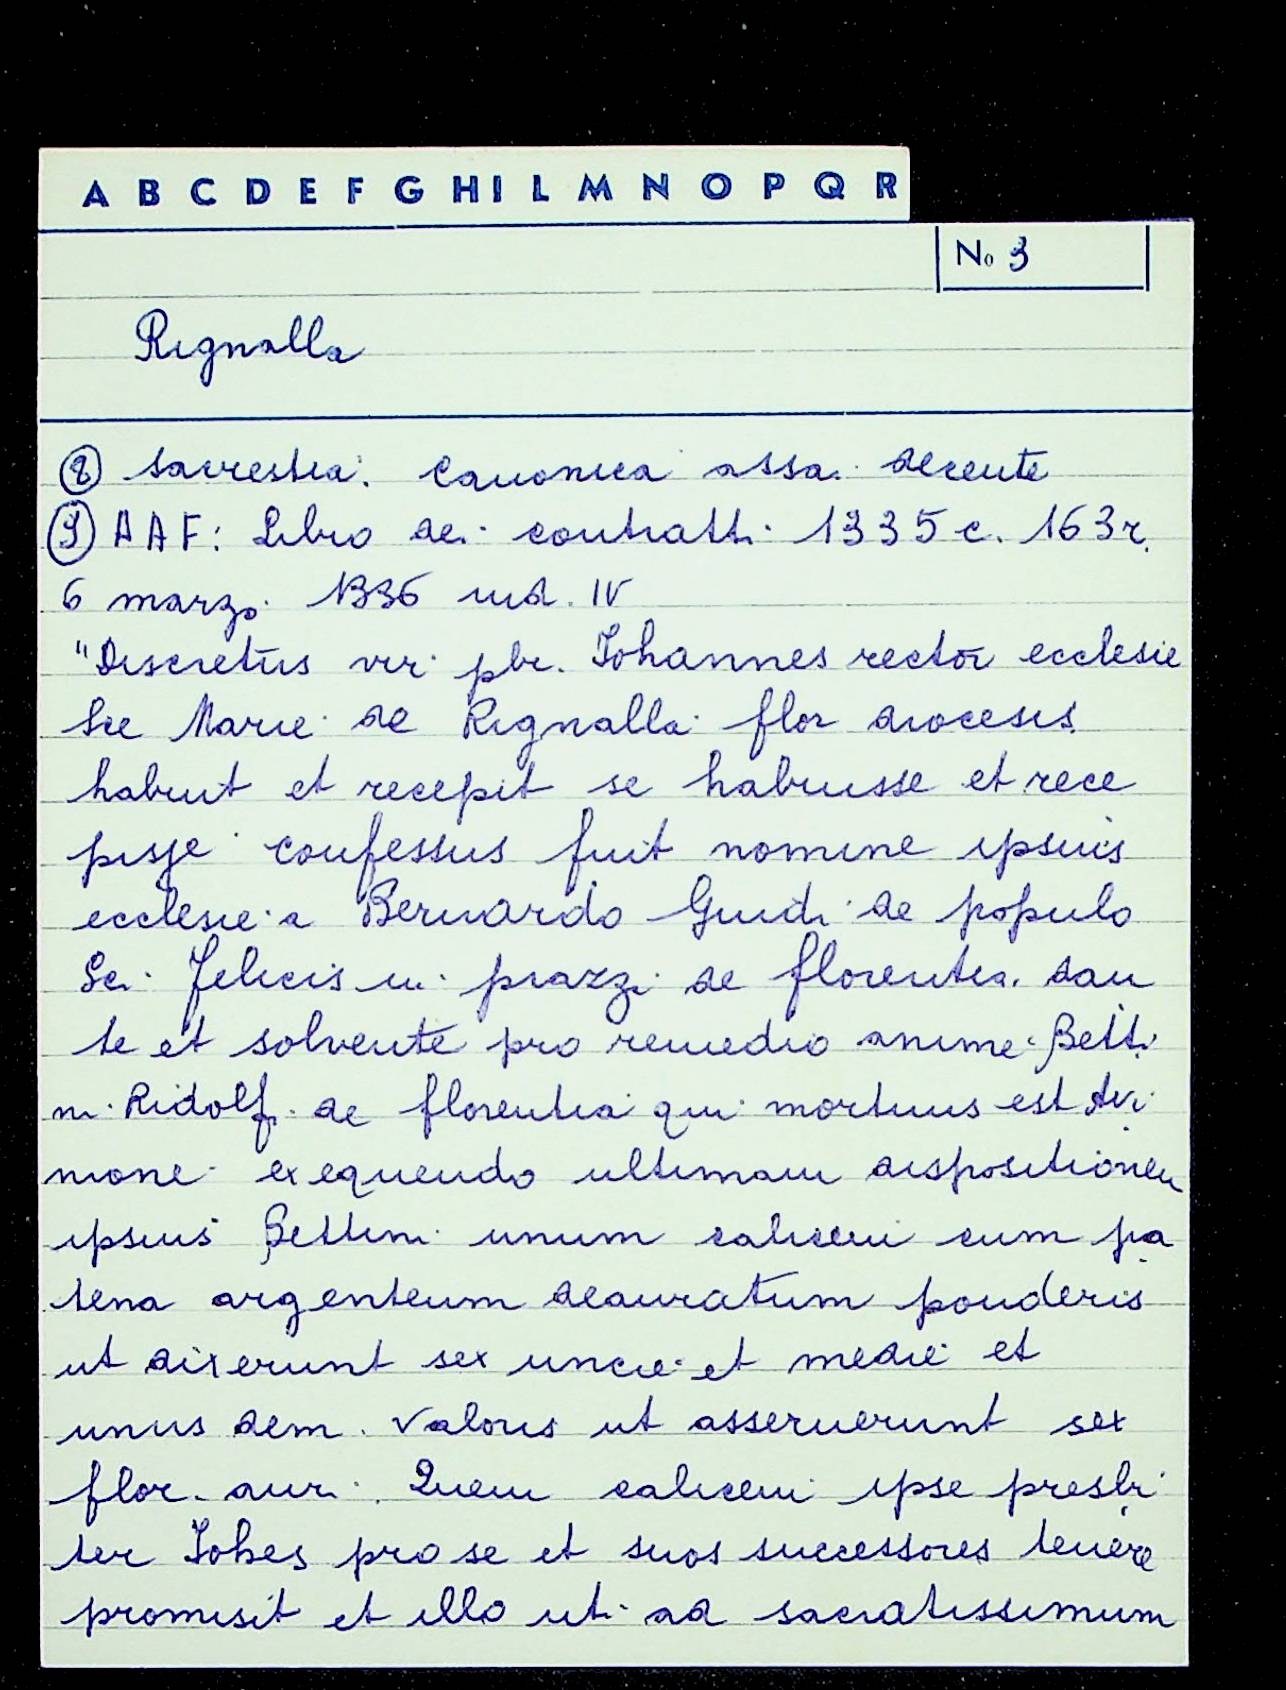 A B C D E F G H I L M N O P Q R
No 3
Rignalla
⑧ sacrestia. Canonica assai decente
⑨ AAF: Libro dei contratti 1335 c. 163r.
6 marzo 1336 ind. IV
"Discretus vir pbr. Iohannes rector ecclesie
Sce Marie de Rignalla flor diocesis
habuit et recepit se habuisse et rece
pisse confessus fuit nomine ipsius
ecclesie a Bernardo Guidi de populo
Sci Felicis in piazzi de florentia dan
te et solvente pro remedio anime Betti
ni Ridolfi de florentia qui mortuus est Avi
nione exequendo ultimam dispositionem
ipsius Bettini unum calicem cum pa
tena argenteum deauratum ponderis
ut dixerunt sex uncie et medie et
unus dem. valoris ut asseruerunt sex
flor. auri. Quem calicem ipse presbi
ter Iohes pro se et suos successores tenere
promisit et illo uti ad sacratissimum